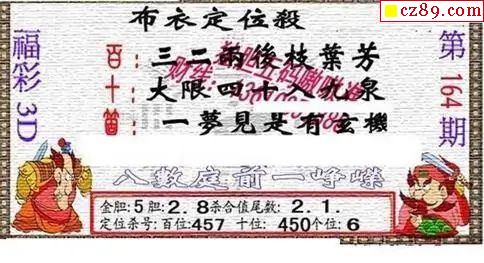 cz89.com
布衣定位殺
福彩3D
第164期
百 三二雨後枝葉芳
十 大限四十入九泉
個 一夢見是有玄機
八數庭前一崢嶸
金胆:5 胆:2.8杀合值尾数:2.1.
定位杀号:百位:457 十位:450个位:6